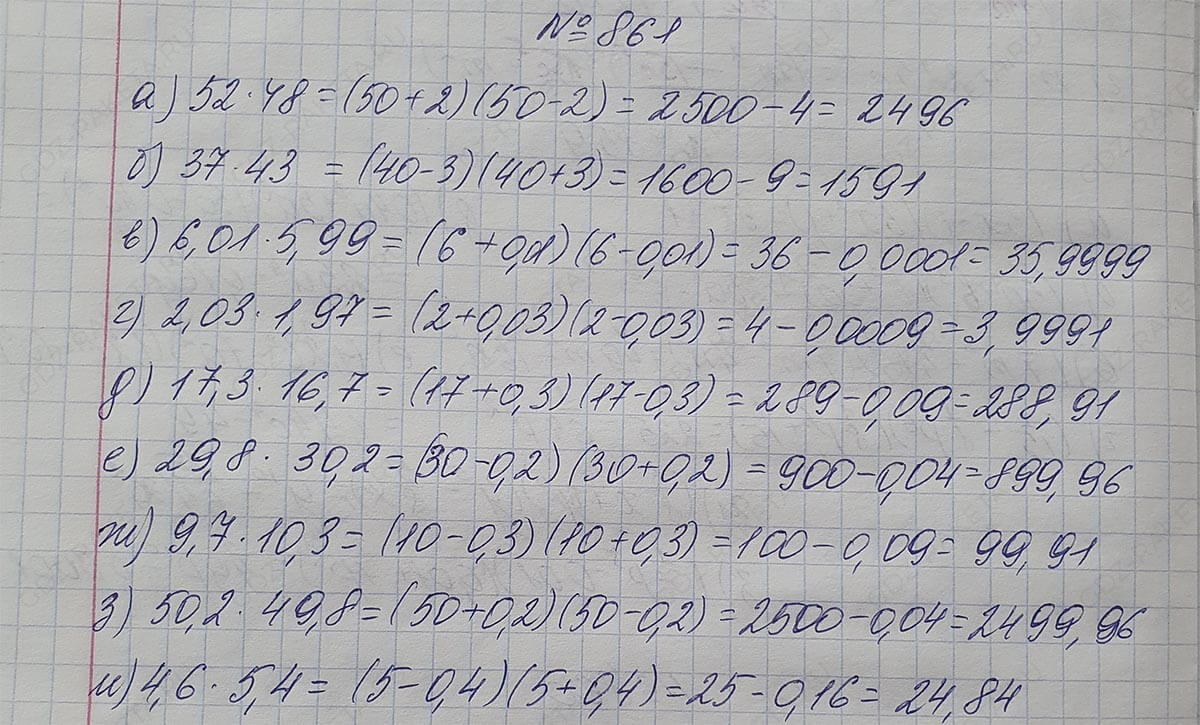 №861
а) 52·48=(50+2)(50-2)=2500-4=2496
б) 37·43 =(40-3)(40+3)=1600-9=1591
в) 6,01·5,99=(6+0,01)(6-0,01)=36-0,0001=35,9999
г) 2,03·1,97=(2+0,03)(2-0,03)=4-0,0009=3,9991
д) 17,3·16,7=(17+0,3)(17-0,3)=289-0,09=288,91
е) 29,8·30,2=(30-0,2)(30+0,2)=900-0,04=899,96
ж) 9,7·10,3=(10-0,3)(10+0,3)=100-0,09=99,91
з) 50,2·49,8=(50+0,2)(50-0,2)=2500-0,04=2499,96
и) 4,6·5,4=(5-0,4)(5+0,4)=25-0,16=24,84